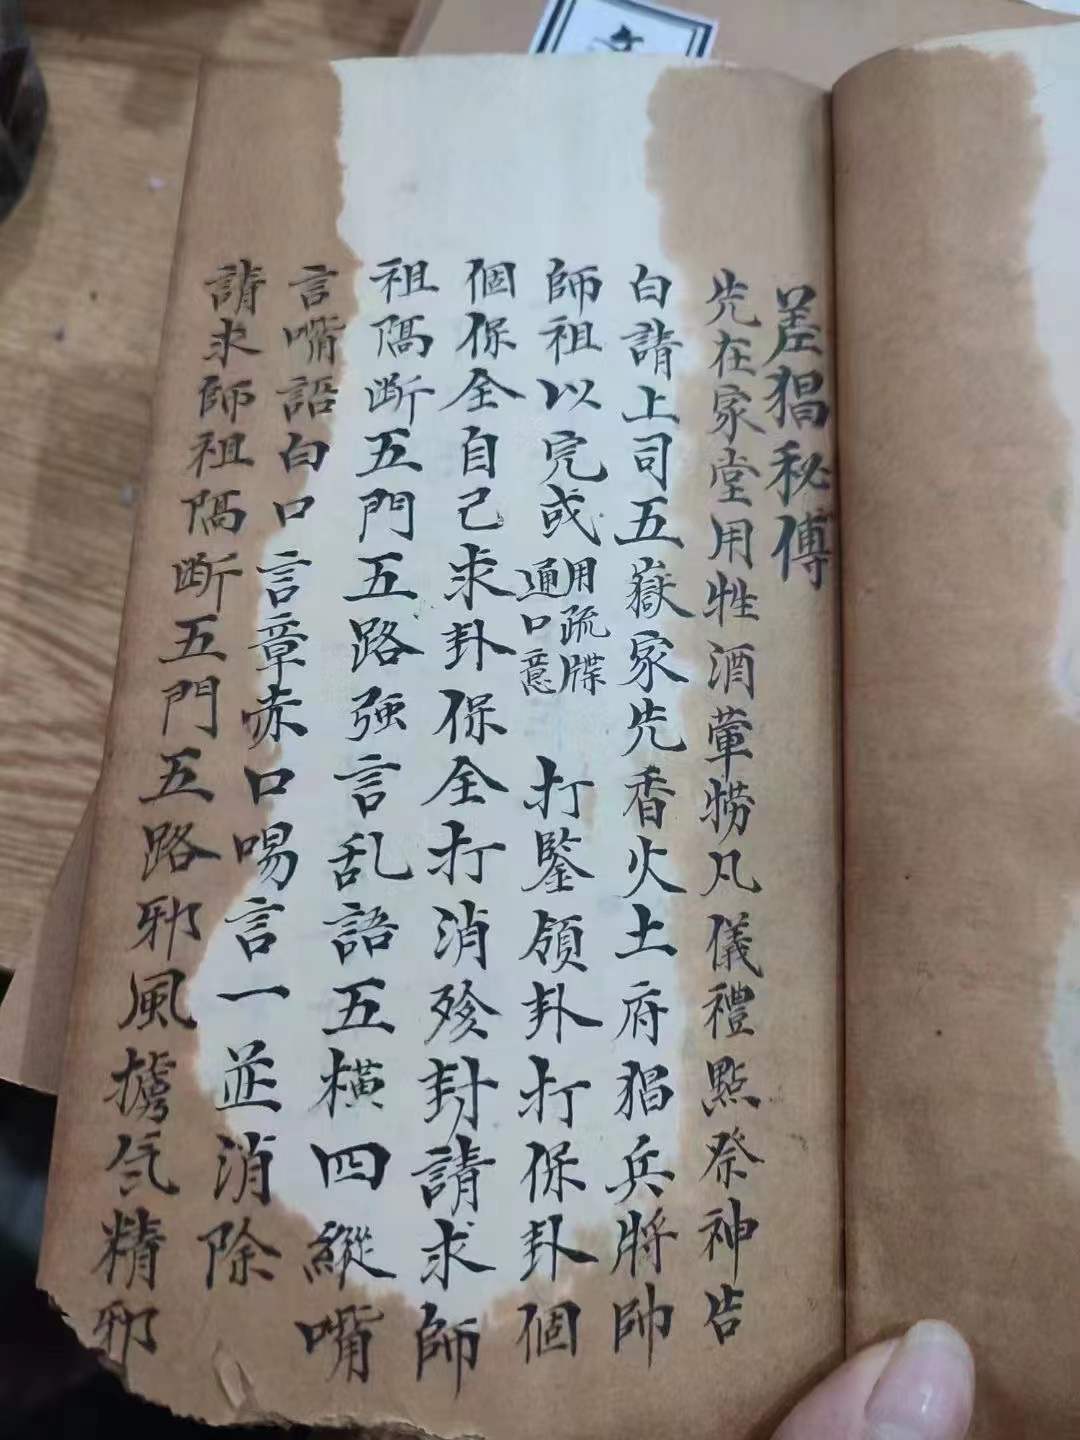 差猖秘傳
先在家堂用牲酒葷捞凡儀禮點祭神告
白請上司五嶽家先香火土府猖兵將帥
師祖以完或用疏牒通口意 打鑒領卦打保卦個
個保全自己求卦保全打消殄封請求師
祖隔斷五門五路强言乱語五橫四縱嘴
言嘴語白口言章赤口喝言一並消除
請求師祖隔斷五門五路邪風擄气精邪